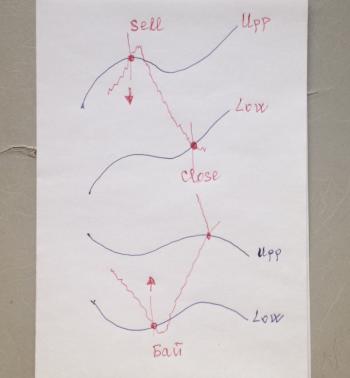 Sell
Upp
Low
Close
Upp
Low
Бай